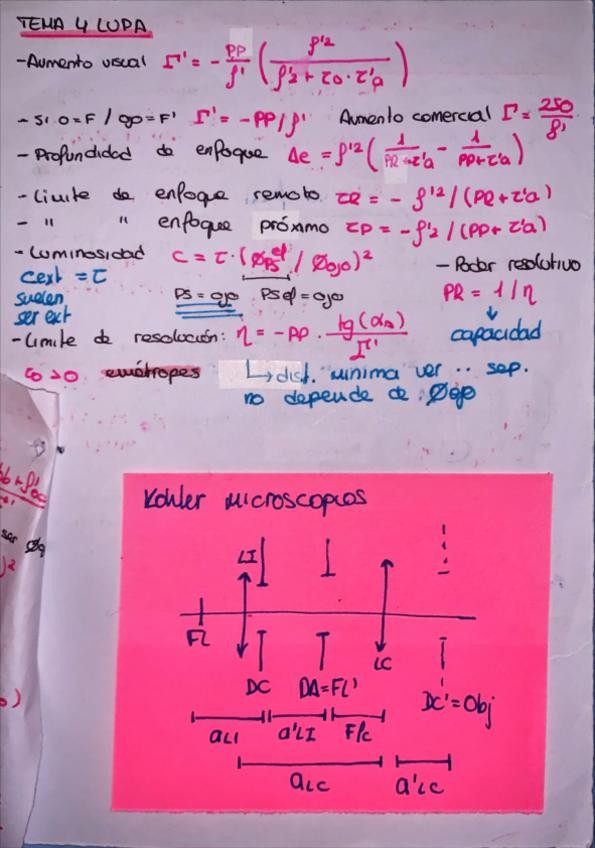 TEMA 4 LUPA
- Aumento visual Γ' = - PP/f' ( f'² / (f'² + z_o · z'a) )
- Si O=F / ojo=F' Γ' = -PP/f' Aumento comercial Γ = 250/f'
- Profundidad de enfoque Δe = f'² ( 1/(PR+z'a) - 1/(PP+z'a) )
- Límite de enfoque remoto zR = - f'² / (PR + z'a)
- " " enfoque próximo zP = - f'² / (PP + z'a)
- Luminosidad C = τ · (Ø PS ef / Ø ojo)² - Poder resolutivo
Cext = τ PS = ojo PS ef = ojo PR = 1/η
suelen
ser ext
- Límite de resolución: η = - PP · tg(αa) / Γ' capacidad
emétropes ↳ dist. mínima ver .. sep.
no depende de Ø ojo
ser Øo
Kohler microscopios
LI
FL
LC
DC DA=FL' DC' = Obj
aLI a'LI F/c
aLC a'LC